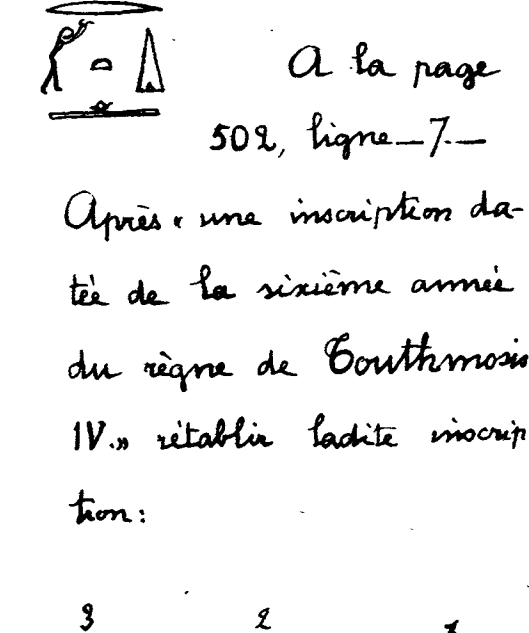 A la page
502, ligne _ 7. _
Après « une inscription da-
tée de la sixième année
du règne de Touthmosis
IV. » rétablir ladite inscrip
tion :
3 2 1